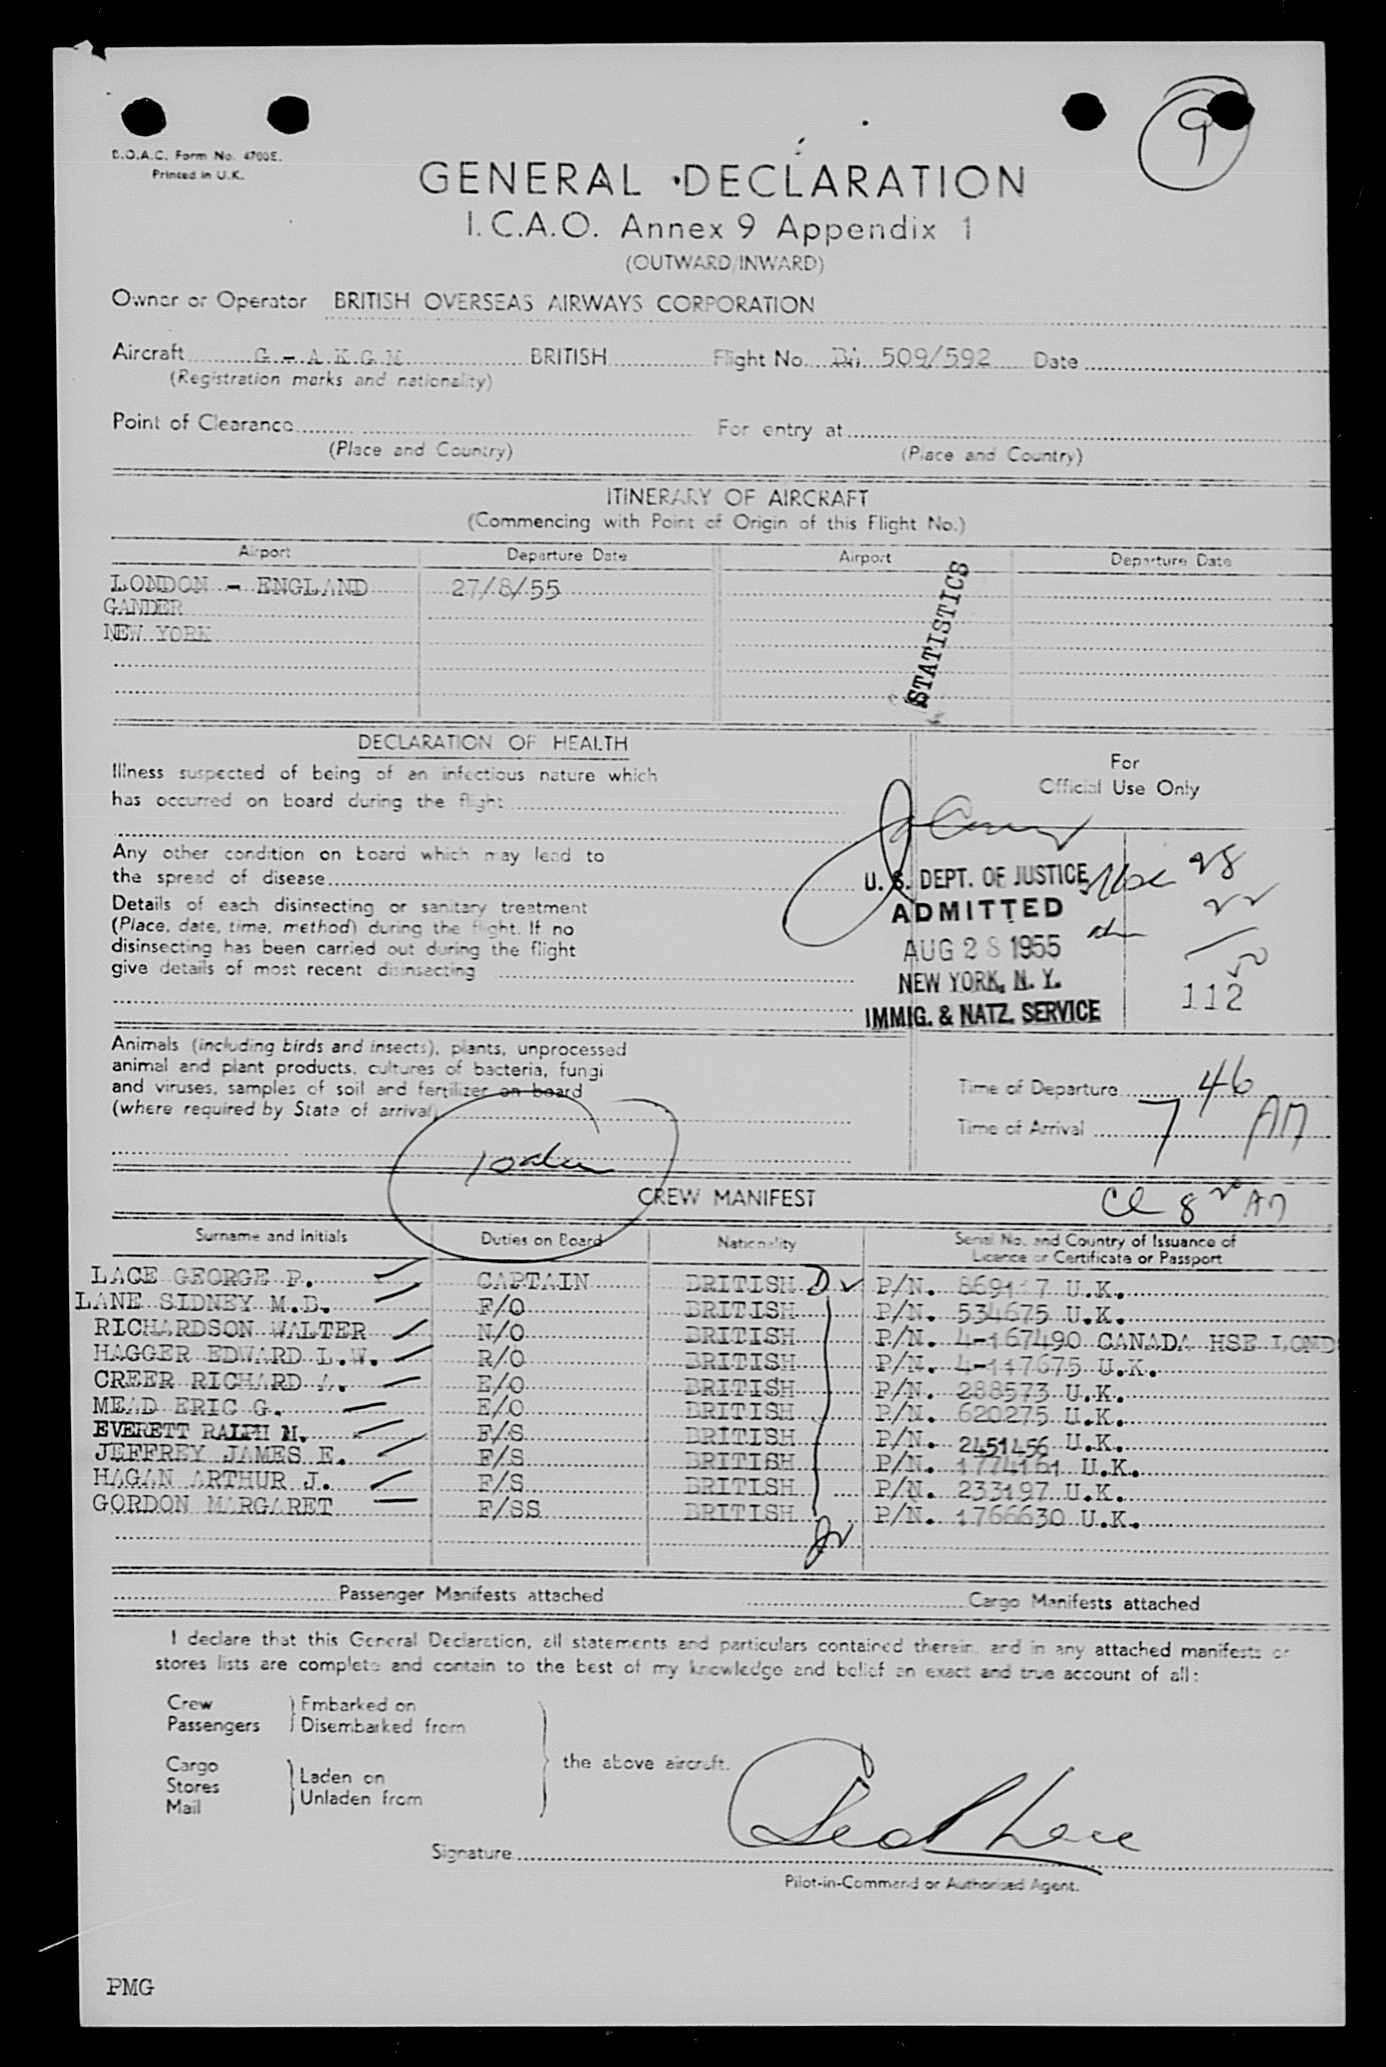 9
B.O.A.C. Form No. 4700E.
Printed in U.K.
GENERAL DECLARATION
I.C.A.O. Annex 9 Appendix 1
(OUTWARD/INWARD)
Owner or Operator BRITISH OVERSEAS AIRWAYS CORPORATION
Aircraft G - A K G M BRITISH Flight No. BA 509/592 Date
(Registration marks and nationality)
Point of Clearance For entry at
(Place and Country) (Place and Country)
ITINERARY OF AIRCRAFT
(Commencing with Point of Origin of this Flight No.)
Airport Departure Date Airport Departure Date
LONDON - ENGLAND 27/8/55
GANDER
NEW YORK
STATISTICS
DECLARATION OF HEALTH
Illness suspected of being of an infectious nature which
has occurred on board during the flight
Any other condition on board which may lead to
the spread of disease
Details of each disinsecting or sanitary treatment
(Place, date, time, method) during the flight. If no
disinsecting has been carried out during the flight
give details of most recent disinsecting
For
Official Use Only
U. S. DEPT. OF JUSTICE
ADMITTED
AUG 28 1955
NEW YORK, N. Y.
IMMIG. & NATZ. SERVICE
28
22
112
Animals (including birds and insects), plants, unprocessed
animal and plant products, cultures of bacteria, fungi
and viruses, samples of soil and fertilizer on board
(where required by State of arrival)
Time of Departure
Time of Arrival 7 46 AM
CREW MANIFEST
Surname and Initials Duties on Board Nationality Serial No. and Country of Issuance of
Licence or Certificate or Passport
LACE GEORGE P. CAPTAIN BRITISH P/N. U.K.
LANE SIDNEY M.D. F/O BRITISH P/N. 534675 U.K.
RICHARDSON WALTER N/O BRITISH P/N. 4-167490 CANADA HSE LOND
HAGGER EDWARD L.W. R/O BRITISH P/N. 4-117675 U.K.
CREER RICHARD A. E/O BRITISH P/N. 288573 U.K.
MEAD ERIC G. E/O BRITISH P/N. 620275 U.K.
EVERETT RALPH M. F/S BRITISH P/N. 2451456 U.K.
JEFFREY JAMES E. F/S BRITISH P/N. 1774161 U.K.
HAGAN ARTHUR J. F/S BRITISH P/N. 233197 U.K.
GORDON MARGARET F/SS BRITISH P/N. 1766630 U.K.
Passenger Manifests attached Cargo Manifests attached
I declare that this General Declaration, all statements and particulars contained therein, and in any attached manifests or
stores lists are complete and contain to the best of my knowledge and belief an exact and true account of all:
Crew Embarked on
Passengers Disembarked from
the above aircraft.
Cargo
Stores Laden on
Mail Unladen from
Signature Geo P Lace
Pilot-in-Command or Authorised Agent.
PMG